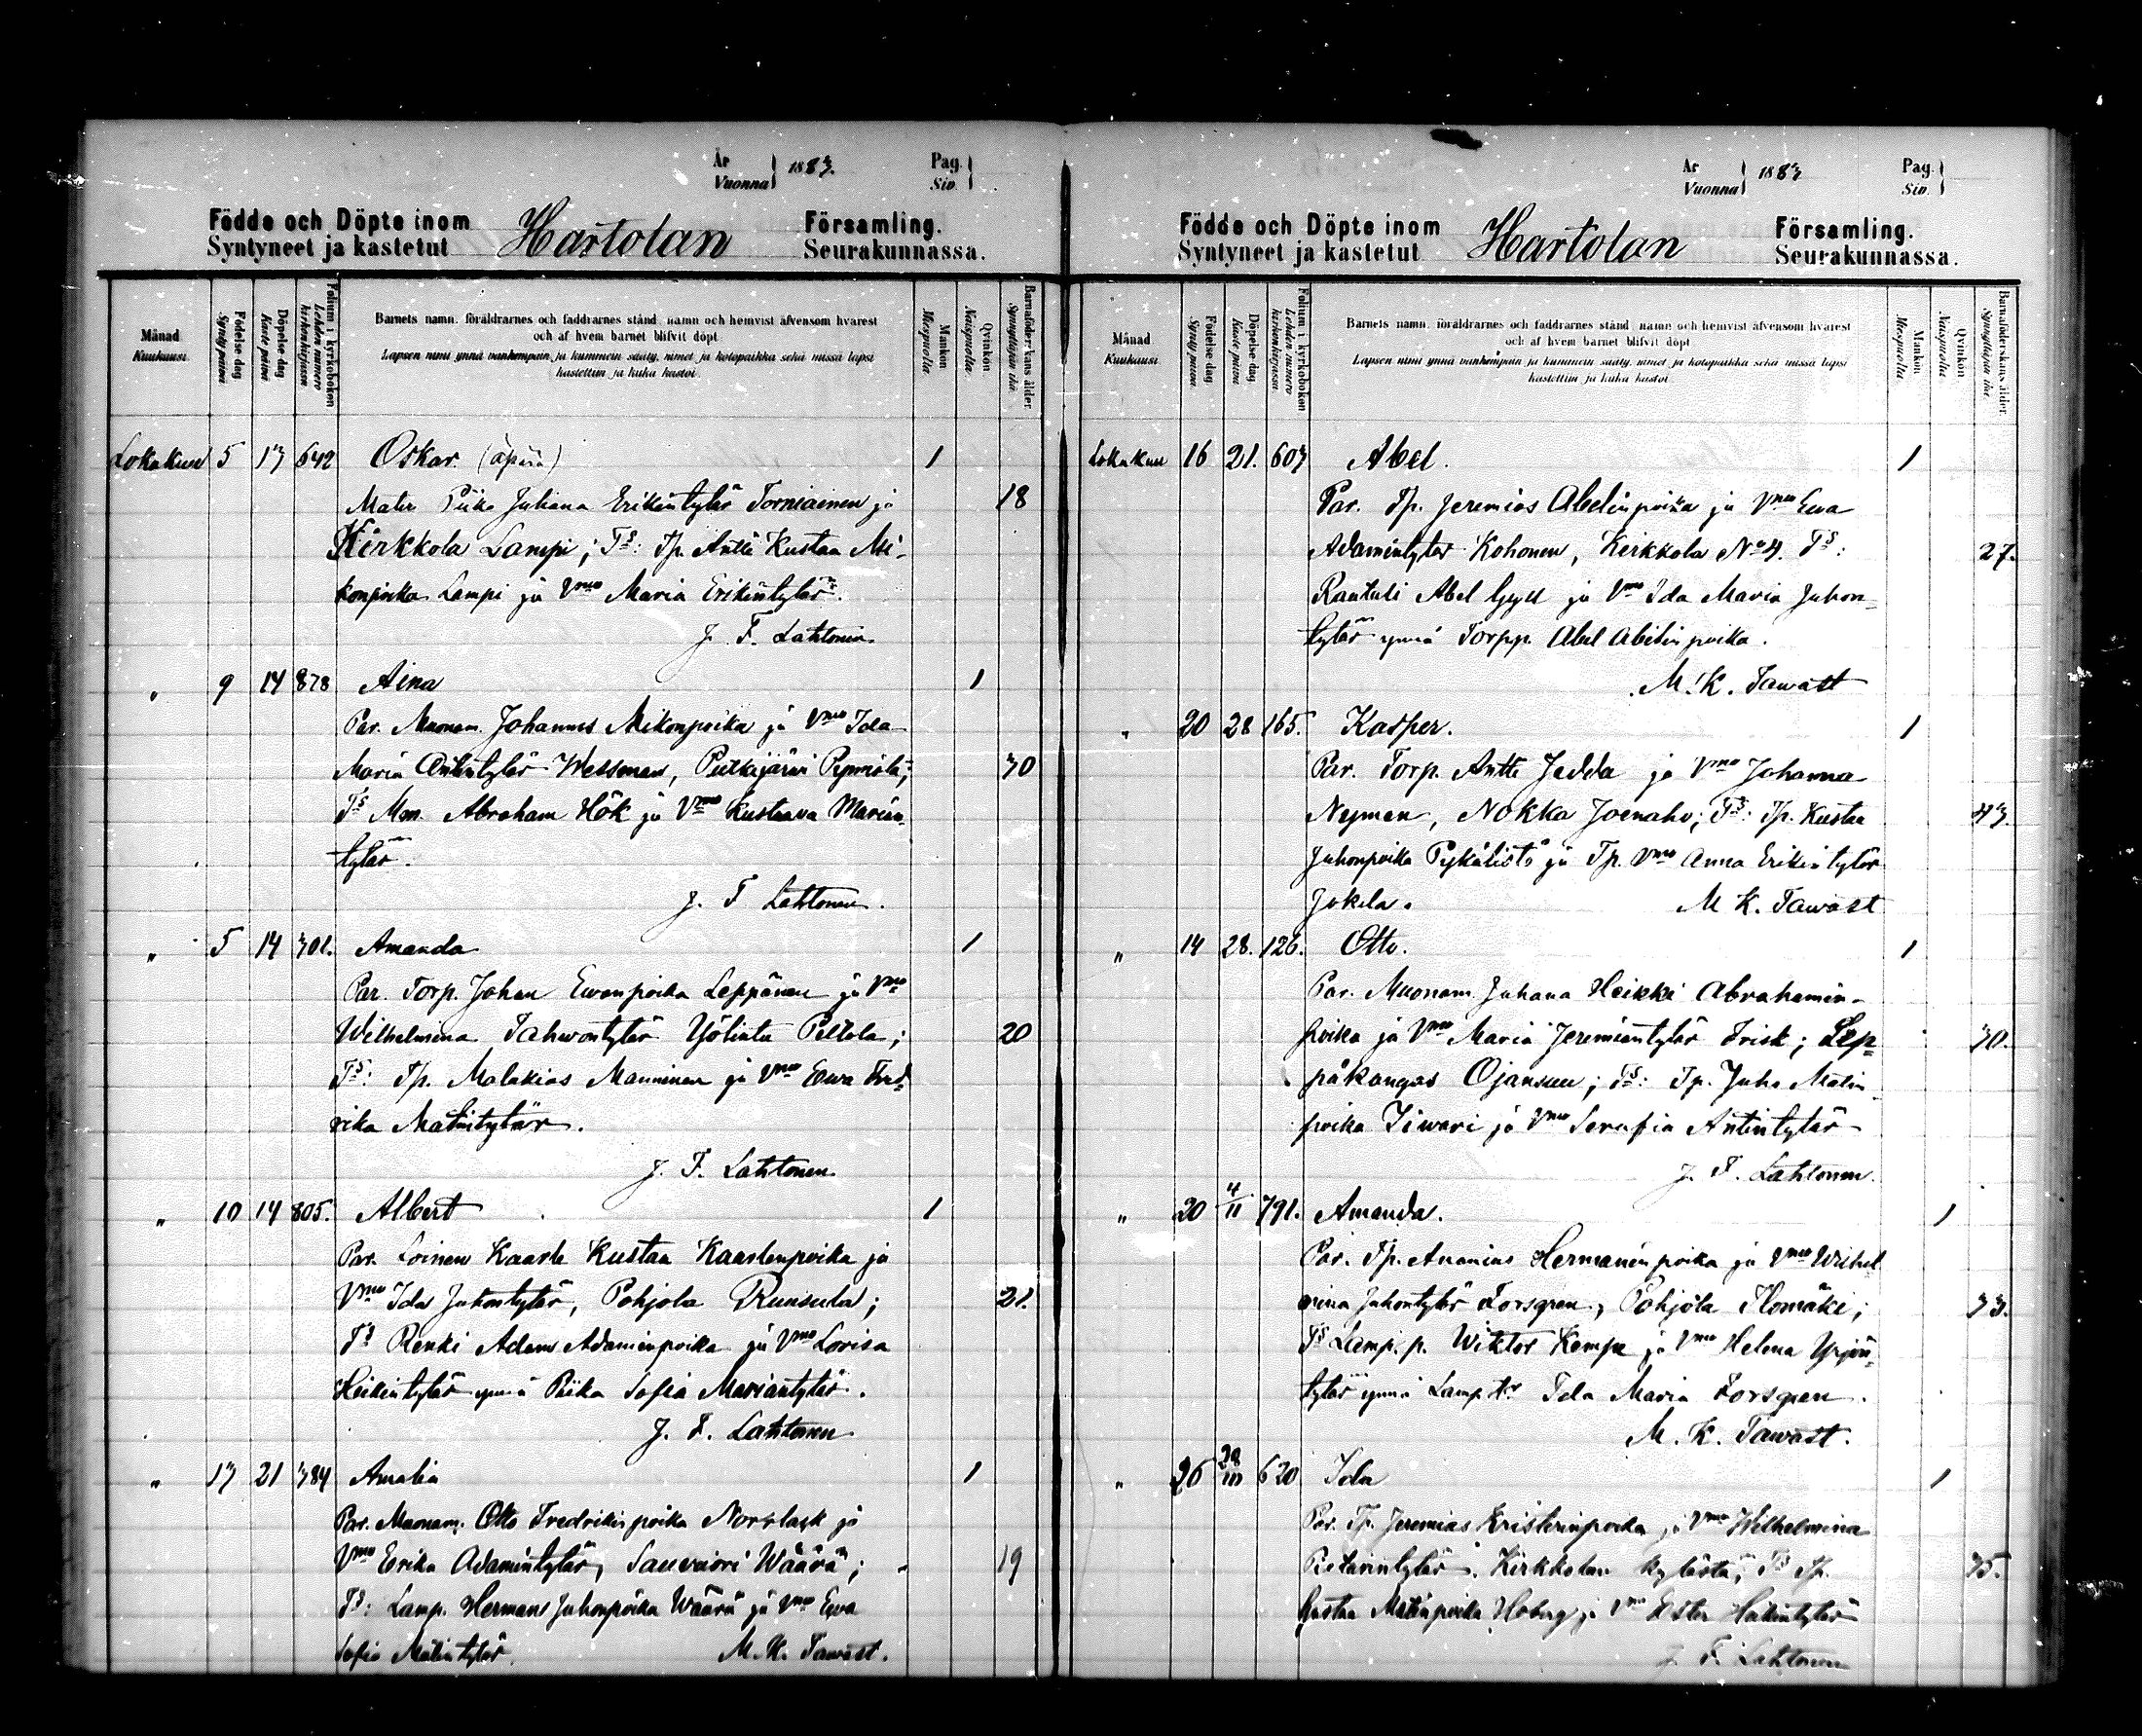 År
Vuonna } 1883.
Pag.
Siv. }
Födde och Döpte inom
Syntyneet ja kastetut
Hartolan
Församling.
Seurakunnassa.
Månad
Kuukausi
Födelse dag
Synty päivä
Döpelse dag
Kaste päivä
Folium i kyrkoboken
Lehden numero kirkonkirjassa
Barnets namn, föräldrarnes och faddrarnes stånd, namn och hemvist äfvensom hvarest
och af hvem barnet blifvit döpt
Lapsen nimi ynnä vanhempain ja kummein sääty, nimet ja kotopaikka sekä missä lapsi
kastettiin ja kuka kastoi
Mankön
Miespuolia
Qvinkön
Naispuolia
Barnaföderskans ålder
Synnyttäjän ikä
Lokakuu 5 13 642 Oskar. (äpärä) 1
Mater Piika Juliana Erikintytär Torniainen ja 18
Kirkkola Lampi; Ts: Tp. Antti Kustaa Mi-
konpoika Lampi ja Vmo Maria Erikintytär.
J. F. Lahtonen
" 9 14 878 Aina 1
Par. Muonam. Johannes Mikonpoika ja Vmo Ida
Maria Antintytär Wessman, Putkijärvi 30
Ts Mm. Abraham Hök ja Vmo Kustaava Marian-
tytär.
J. F. Lahtonen.
" 5 14 301. Amanda 1
Par. Torp. Johan Ewanpoika Leppänen ja Vmo
Wilhelmina Tahwontytär Peltola; 20
Ts: Tp. Malakias Manninen ja Vmo Ewa Fred-
rika Matintytär.
J. F. Lahtonen
" 10 14 805. Albert 1
Par. Loinen Kaarle Kustaa Kaarlenpoika ja
Vmo Ida Juhontytär, Pohjola Ruusula; 21.
Ts Renki Adam Adaminpoika ja Vmo Lovisa
Heikintytär ynnä Piika Sofia Mariantytär.
J. F. Lahtonen
" 13 21 384 Amalia 1
Par. Muonam. Otto Fredrikinpoika ja
Vmo Erika Adamintytär, Wäärä; 19
Ts: Lamp. Herman Juhonpoika Wäärä ja Vmo Ewa
Sofia Matintytär. M. K. Tawast.
År
Vuonna } 1883
Pag.
Siv. }
Födde och Döpte inom
Syntyneet ja kastetut
Hartolan
Församling.
Seurakunnassa.
Månad
Kuukausi
Födelse dag
Synty päivä
Döpelse dag
Kaste päivä
Folium i kyrkoboken
Lehden numero kirkonkirjassa
Barnets namn, föräldrarnes och faddrarnes stånd, namn och hemvist äfvensom hvarest
och af hvem barnet blifvit döpt
Lapsen nimi ynnä vanhempain ja kummein sääty, nimet ja kotopaikka sekä missä lapsi
kastettiin ja kuka kastoi
Mankön
Miespuolia
Qvinkön
Naispuolia
Barnaföderskans ålder
Synnyttäjän ikä
Lokakuu 16 21. 603 Abel. 1
Par. Tp. Jeremias Abelinpoika ja Vmo Ewa
Adamintytär Kohonen, Kirkkola No 4. Ts: 27.
Abel ja Vmo Ida Maria Juhon-
tytär ynnä Torpp. Abel Abelinpoika.
M. K. Tawast
" 20 28 165. Kasper. 1
Par. Torp. Antti Jedda ja Vmo Johanna
Nyman, Nokka Joenaho; Ts: Tp. Kustaa 43.
Juhonpoika Pykälistö ja Tp. Vmo Anna Erikintytär
Jokela. M K. Tawast
" 14 28. 126. Otto. 1
Par. Muonam. Juhana Heikki Abrahamin-
poika ja Vmo Maria Jeremiantytär Frisk; Lep- 30.
päkangas Ojansuu; Ts: Tp. Juho Matin-
poika Iiwari ja Vmo Serafia Antintytär
J. F. Lahtonen.
" 20 4/11 791. Amanda. 1
Par. Tp. Ananias Hermaninpoika ja Vmo Wilhel-
mina Juhontytär Forsgren, Pohjola Ilomäki; 33.
Ts Lamp. p. Wiktor Kempe ja Vmo Helena Yrjön-
tytär ynnä Lamp. tr Ida Maria Forsgren.
M. K. Tawast.
" 26 28/10 620 Ida 1
Par. Tp. Jeremias Kristerinpoika ja Vmo Wilhelmina
Pietarintytär, Kirkkolan kylästä; Ts Tp. 35.
Kustaa Matinpoika Hoberg ja Vmo Ester Heikintytär
J. F. Lahtonen